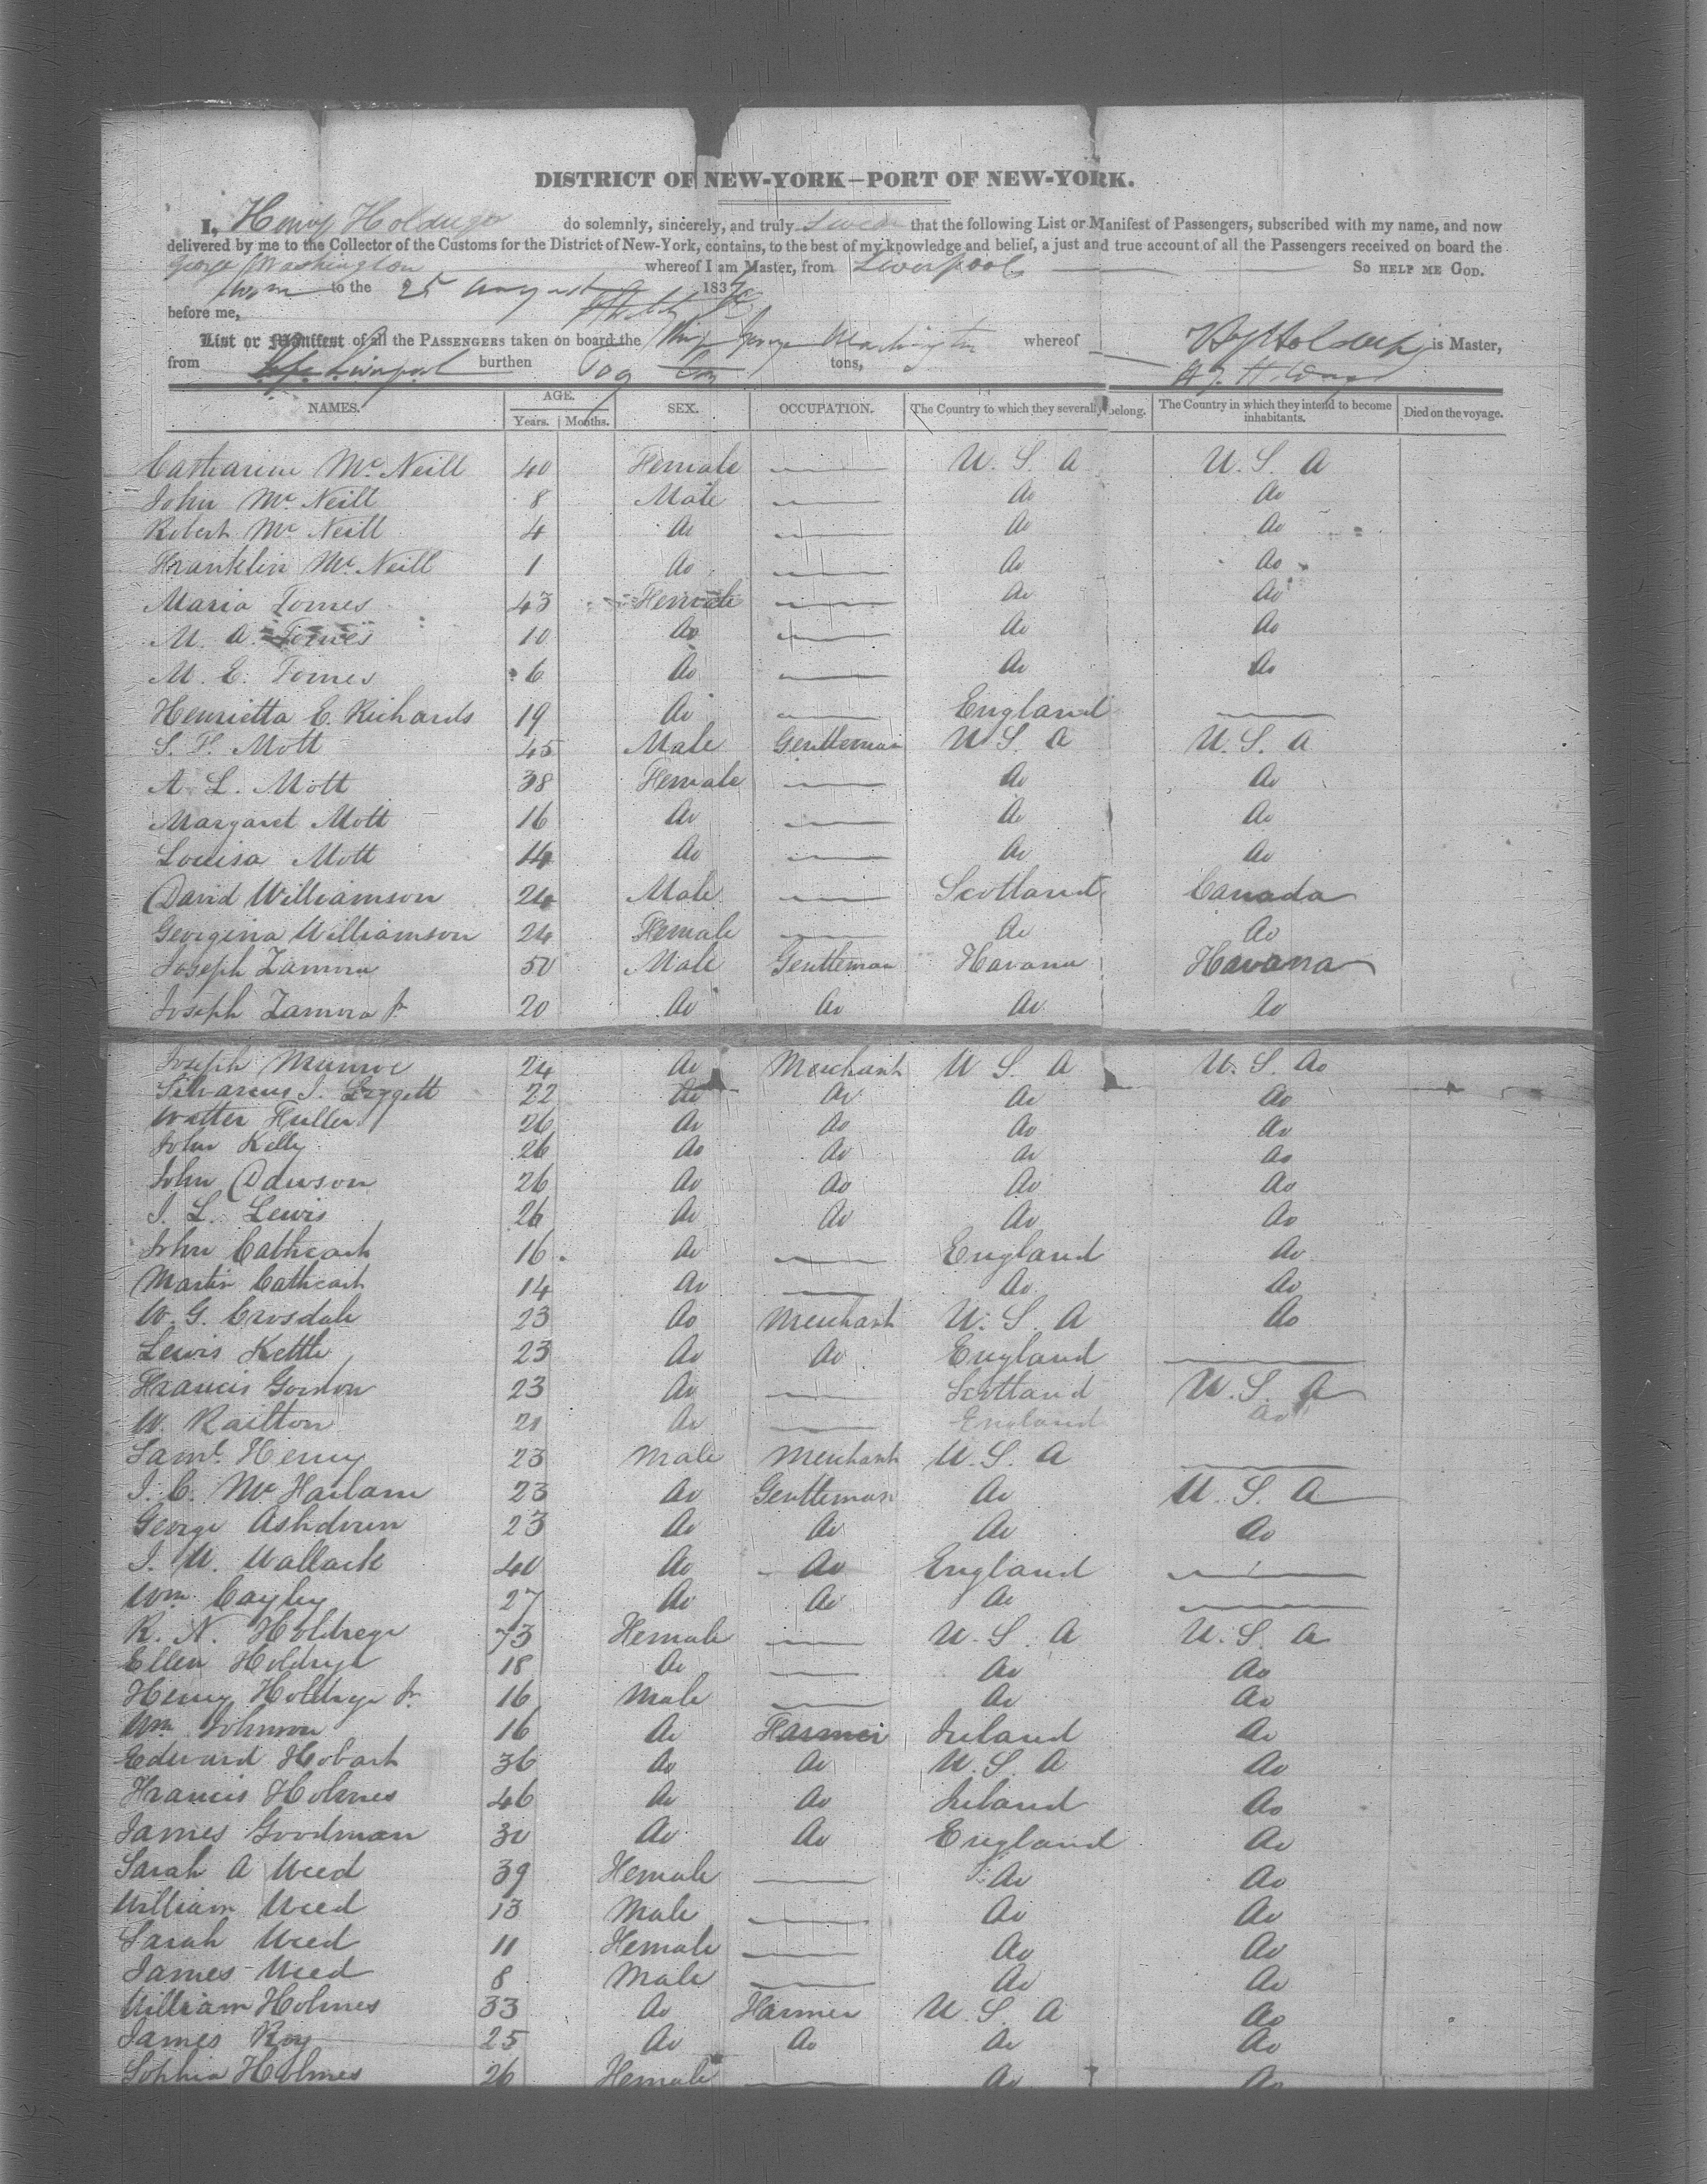 DISTRICT OF NEW-YORK—PORT OF NEW-YORK.
I, Henry Holdrege do solemnly, sincerely, and truly Swear that the following List or Manifest of Passengers, subscribed with my name, and now
delivered by me to the Collector of the Customs for the District of New-York, contains, to the best of my knowledge and belief, a just and true account of all the Passengers received on board the
George Washington whereof I am Master, from Liverpool So help me God.
Sworn to the 25 August 183
before me,
List or Manifest of all the Passengers taken on board the Ship George Washington whereof Hy Holdrege is Master,
from Liverpool burthen tons,
NAMES. AGE. Years. Months. SEX. OCCUPATION. The Country to which they severally belong. The Country in which they intend to become inhabitants. Died on the voyage.
Catharine Mc Neill 40 Female — U. S. A U. S. A
John Mc Neill 8 Male — do do
Robert Mc Neill 4 do — do do
Franklin Mc Neill 1 do — do do
Maria Tomes 43 Female — do do
M. A. Tomes 10 do — do do
M. E. Tomes 6 do — do do
Henrietta E. Richards 19 do — England —
S. F. Mott 45 Male Gentleman U S A U. S. A
A. L. Mott 38 Female — do do
Margaret Mott 16 do — do do
Louisa Mott 14 do — do do
David Williamson 24 Male — Scotland Canada
Georgina Williamson 24 Female — do do
Joseph Zamora 50 Male Gentleman Havana Havana
Joseph Zamora Jr 20 do do do do
Joseph Munroe 24 do Merchant U S A U. S. A
Leggett 22 do do do do
Walter Fuller 26 do do do do
John Kelly 26 do do do do
John Dawson 26 do do do do
J. L. Lewis 26 do do do do
John Cathcart 16 do — England do
Martin Cathcart 14 do — do do
W. G. Crosdale 23 do Merchant U. S. A do
Lewis Kettle 23 do do England —
Francis Gordon 23 do — Scotland U. S. A
W. Railton 21 do — England do
Saml. Henry 23 Male Merchant U. S. A —
J. C. Mc Harlam 23 do Gentleman do U. S. A
George Ashdown 23 do do do do
J. W. Wallack 40 do do England —
Wm Cayley 27 do do do —
R. N. Holdrege 73 Female — U. S. A U. S. A
Ellen Holdrege 18 do — do do
Henry Holdrege Jr. 16 Male — do do
Wm Johnson 16 do Farmer Ireland do
Edward Hobart 36 do do U. S. A do
Francis Holmes 46 do do Ireland do
James Goodman 30 do do England do
Sarah A Weed 39 Female — do do
William Weed 13 Male — do do
Sarah Weed 11 Female — do do
James Weed 8 Male — do do
William Holmes 33 do Farmer U. S. A do
James Roy 25 do do do do
Sophia Holmes 26 Female — do do